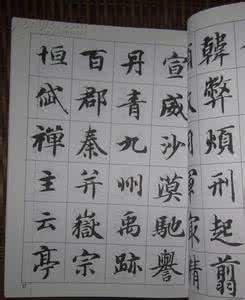 韓弊煩刑起翦
宣威沙漠馳譽
丹青九州禹跡
百郡秦并嶽宗
恒岱禪主云亭